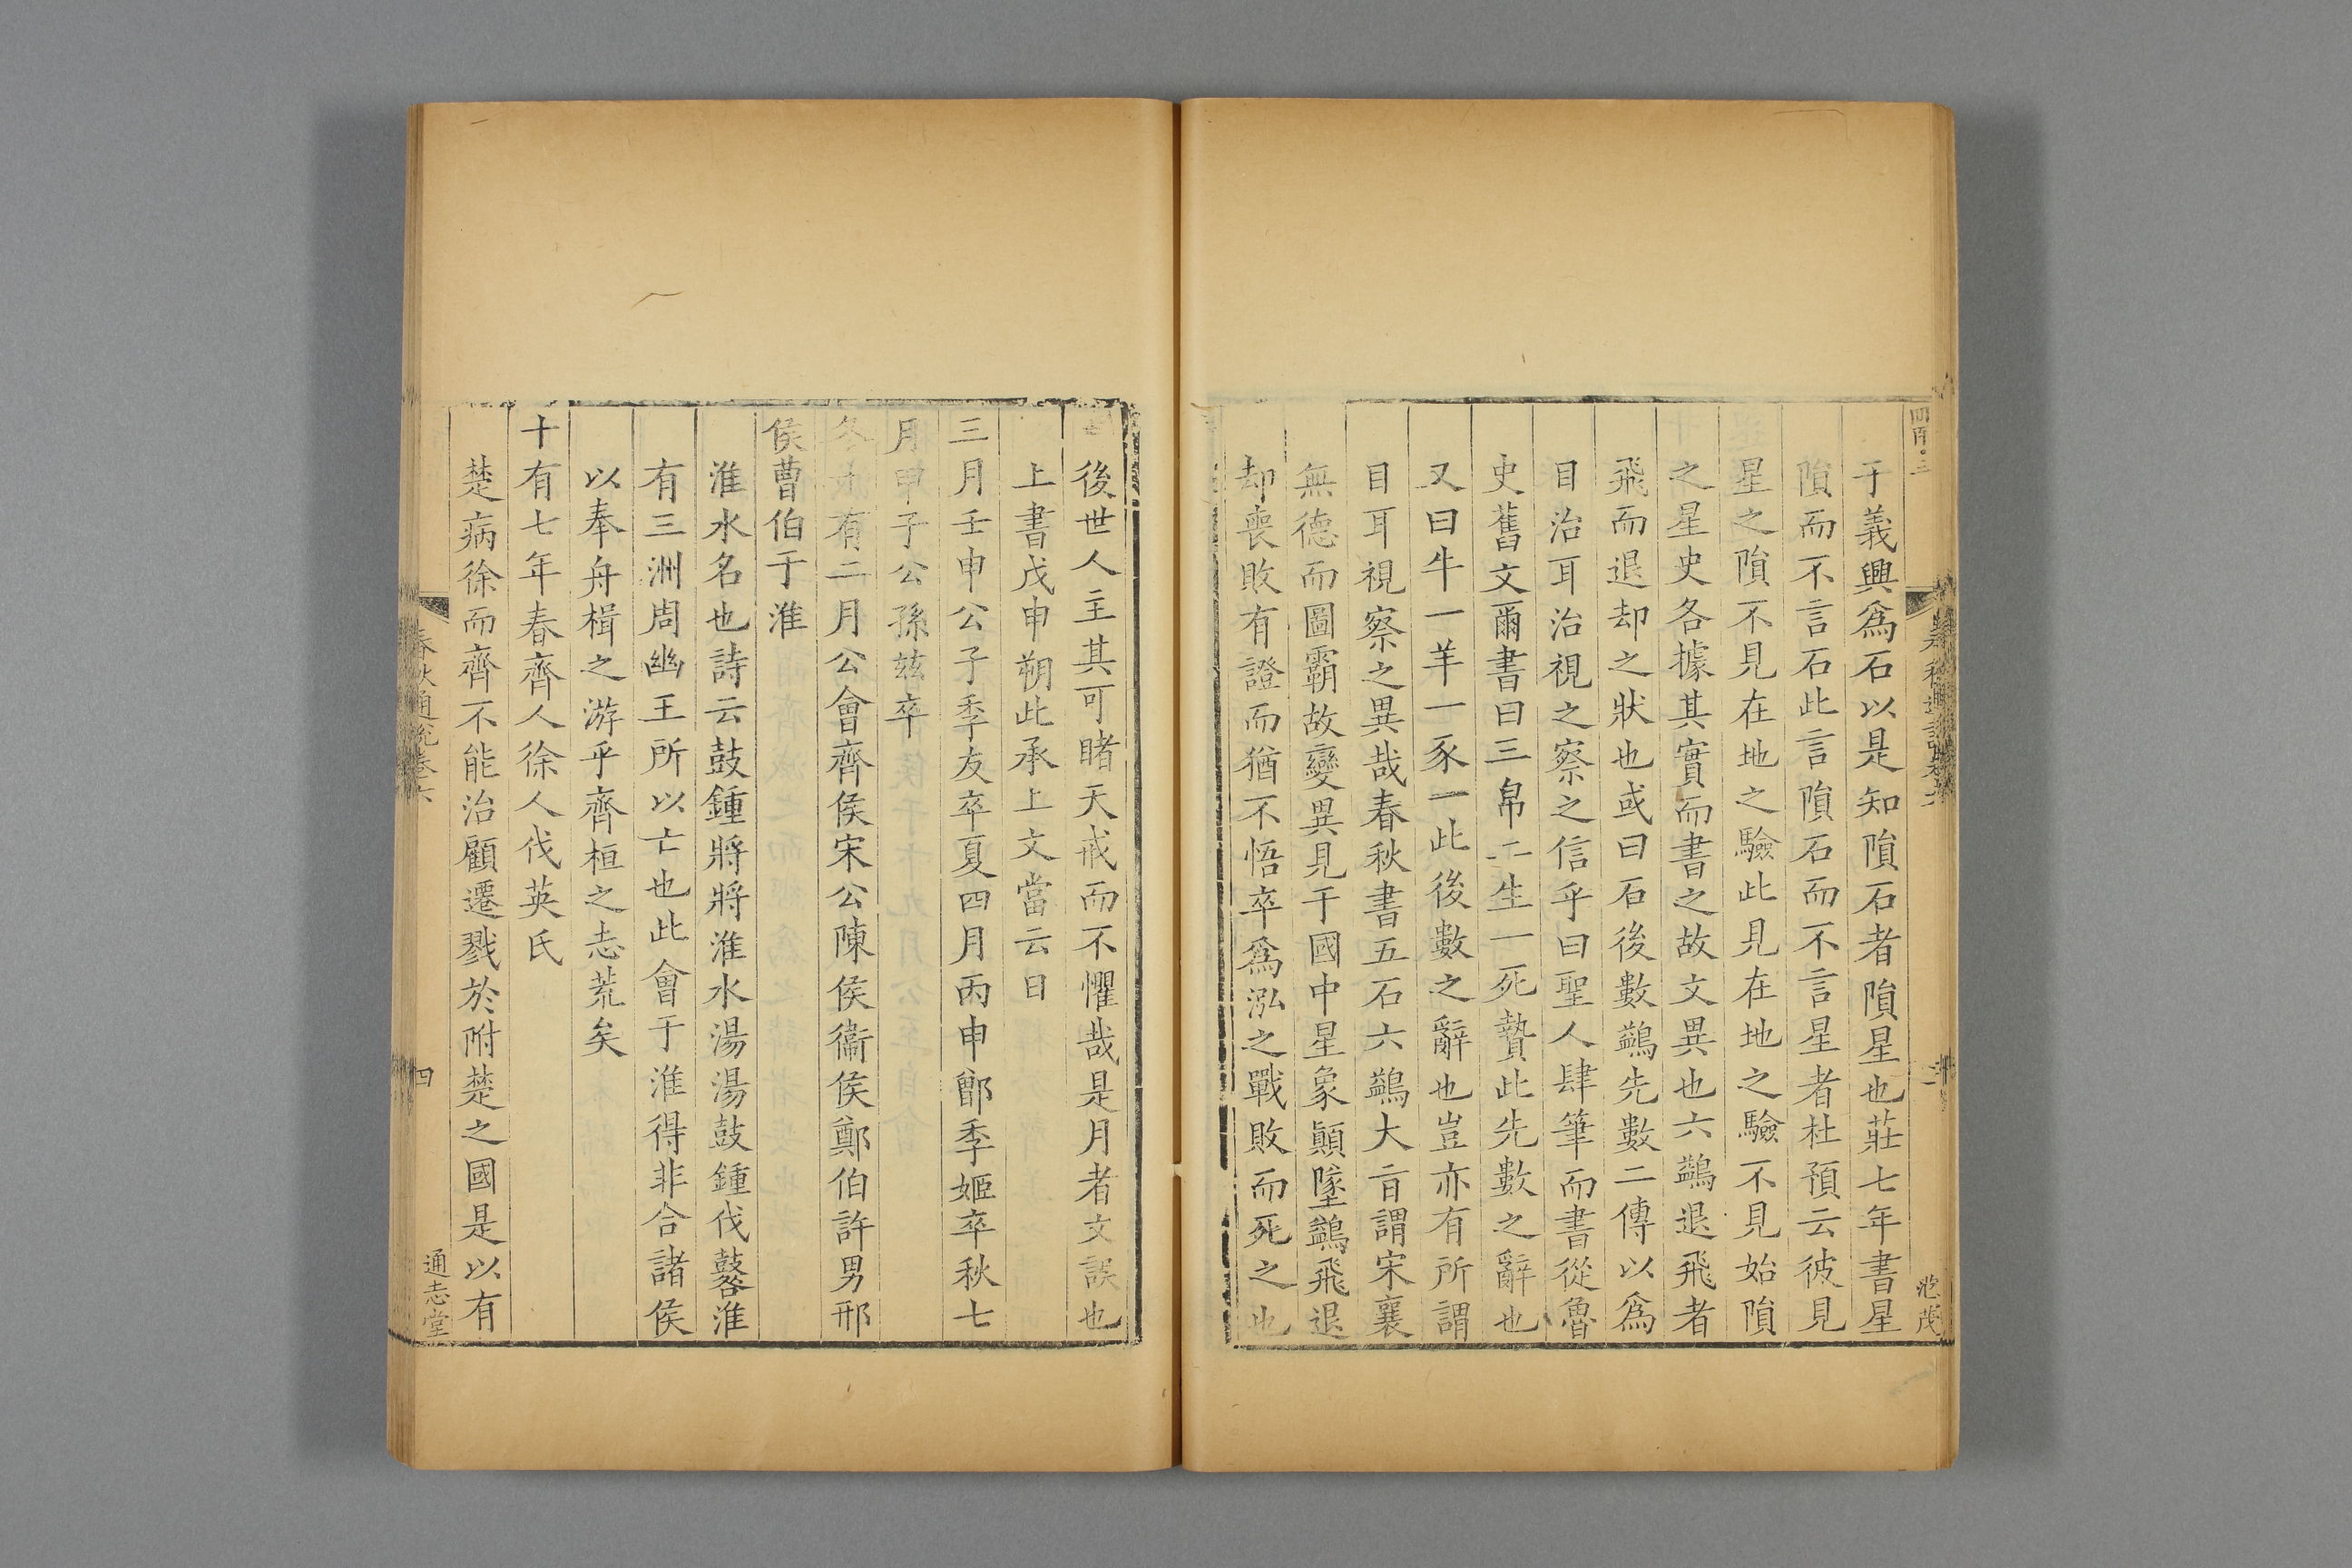 于義興爲石以是知隕石者隕星也莊七年書星
隕而不言石此言隕石而不言星者杜預云彼見
星之隕不見在地之驗此見在地之驗不見始隕
之星史各據其實而書之故文異也六鷁退飛者
飛而退却之狀也或曰石後數鷁先數二傳以爲
目治耳治視之察之信乎曰聖人肆筆而書從魯
史舊文爾書曰三帛二生一死贄此先數之辭也
又曰牛一羊一豕一此後數之辭也豈亦有所謂
目耳視察之異哉春秋書五石六鷁大旨謂宋襄
無德而圖霸故變異見于國中星象顚墜鷁飛退
却喪敗有證而猶不悟卒爲泓之戰敗而死之也
後世人主其可睹天戒而不懼哉是月者文誤也
上書戊申朔此承上文當云日
三月壬申公子季友卒夏四月丙申鄫季姬卒秋七
月甲子公孫兹卒
冬十有二月公會齊侯宋公陳侯衞侯鄭伯許男邢
侯曹伯于淮
淮水名也詩云鼓鍾將將淮水湯湯鼓鍾伐鼛淮
有三洲周幽王所以亡也此會于淮得非合諸侯
以奉舟楫之游乎齊桓之志荒矣
十有七年春齊人徐人伐英氏
楚病徐而齊不能治顧遷戮於附楚之國是以有
春秋通説卷六
四
通志堂